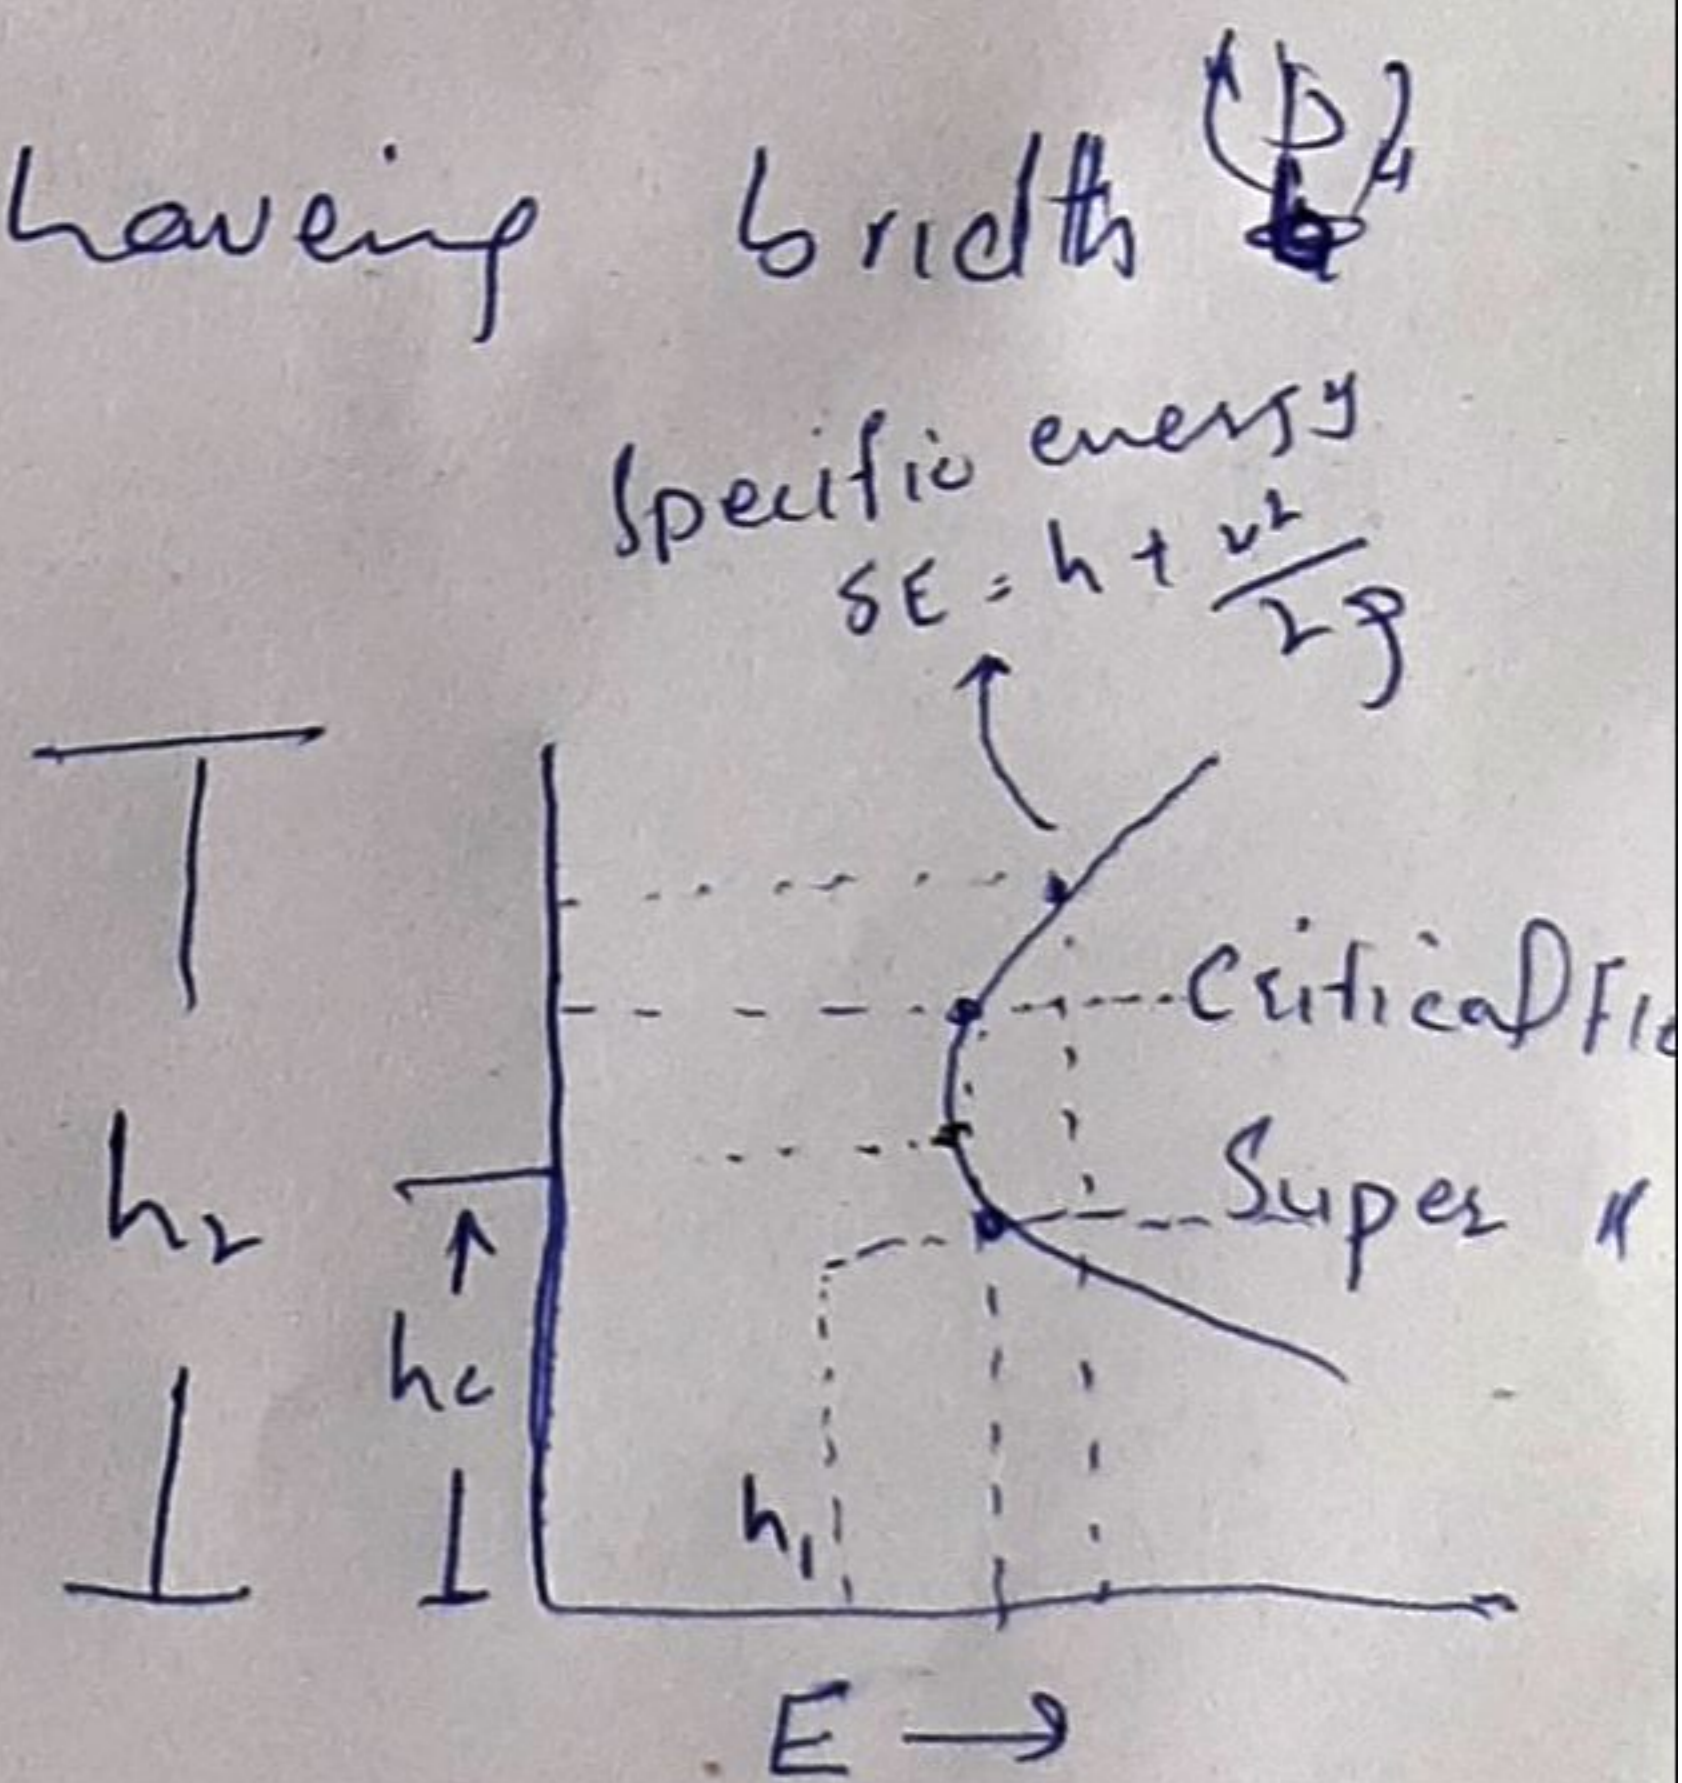 haveing bridth (b)
Specific energy
SE = h + v²/2g
Critical Flo
h₂
Super "
hc
h₁
E →